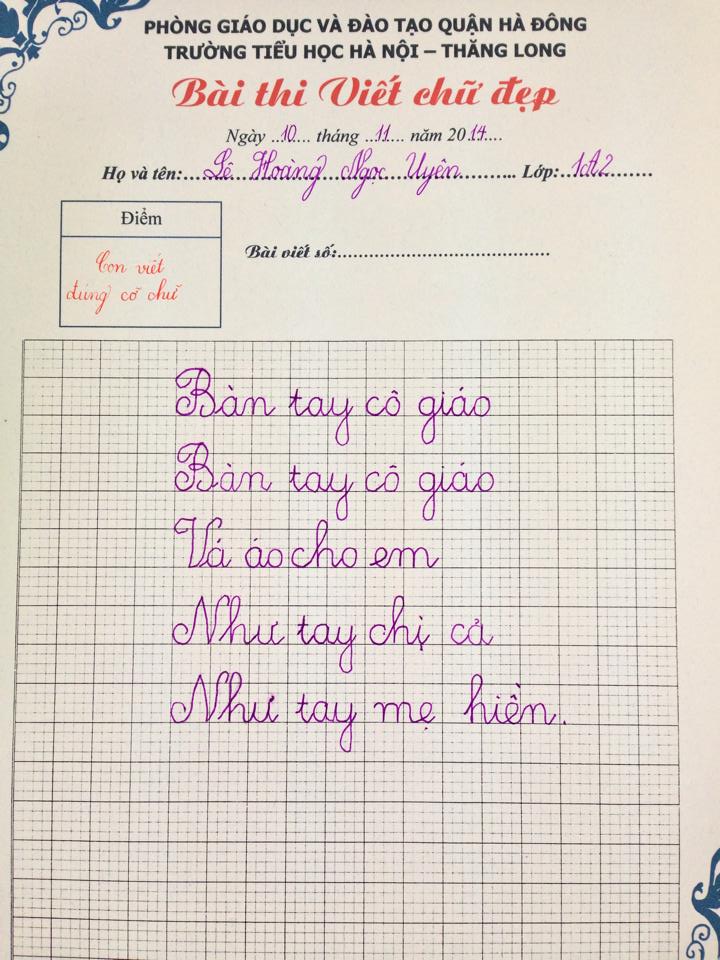 PHÒNG GIÁO DỤC VÀ ĐÀO TẠO QUẬN HÀ ĐÔNG
TRƯỜNG TIỂU HỌC HÀ NỘI – THĂNG LONG
Bài thi Viết chữ đẹp
Ngày ..10.... tháng ..11.... năm 2014....
Họ và tên:....Lê Hoàng Ngọc Uyên........... Lớp:..1A2.........
Điểm
Con viết
đúng cỡ chữ
Bài viết số:..........................................
Bàn tay cô giáo
Bàn tay cô giáo
Vá áo cho em
Như tay chị cả
Như tay mẹ hiền.